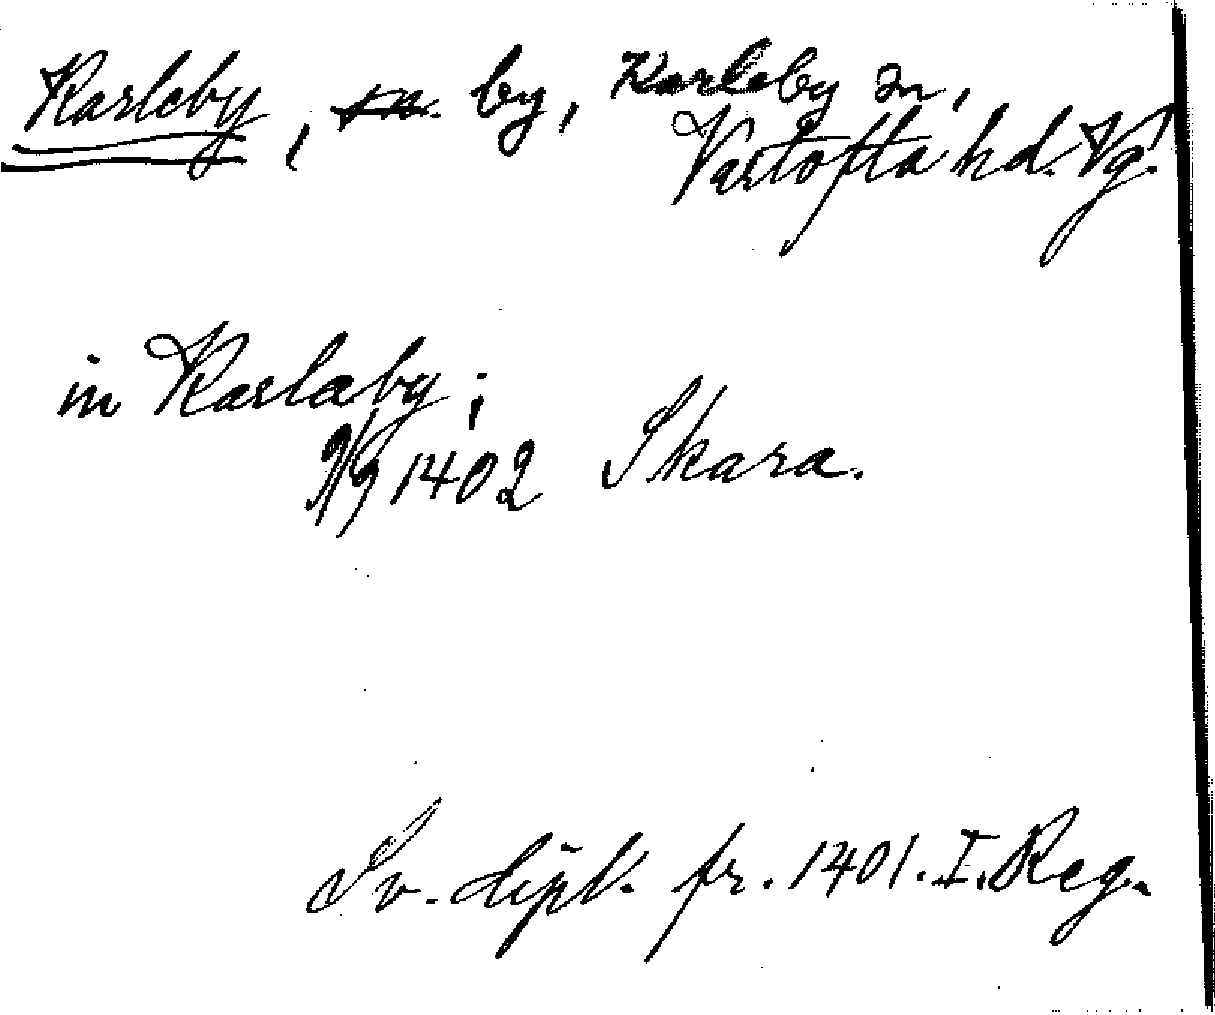 Karleby, by, Karleby sn,
Vartofta hd. Vg.
in Karlaby;
1402 Skara.
Sv. dipl. fr. 1401. I. Reg.